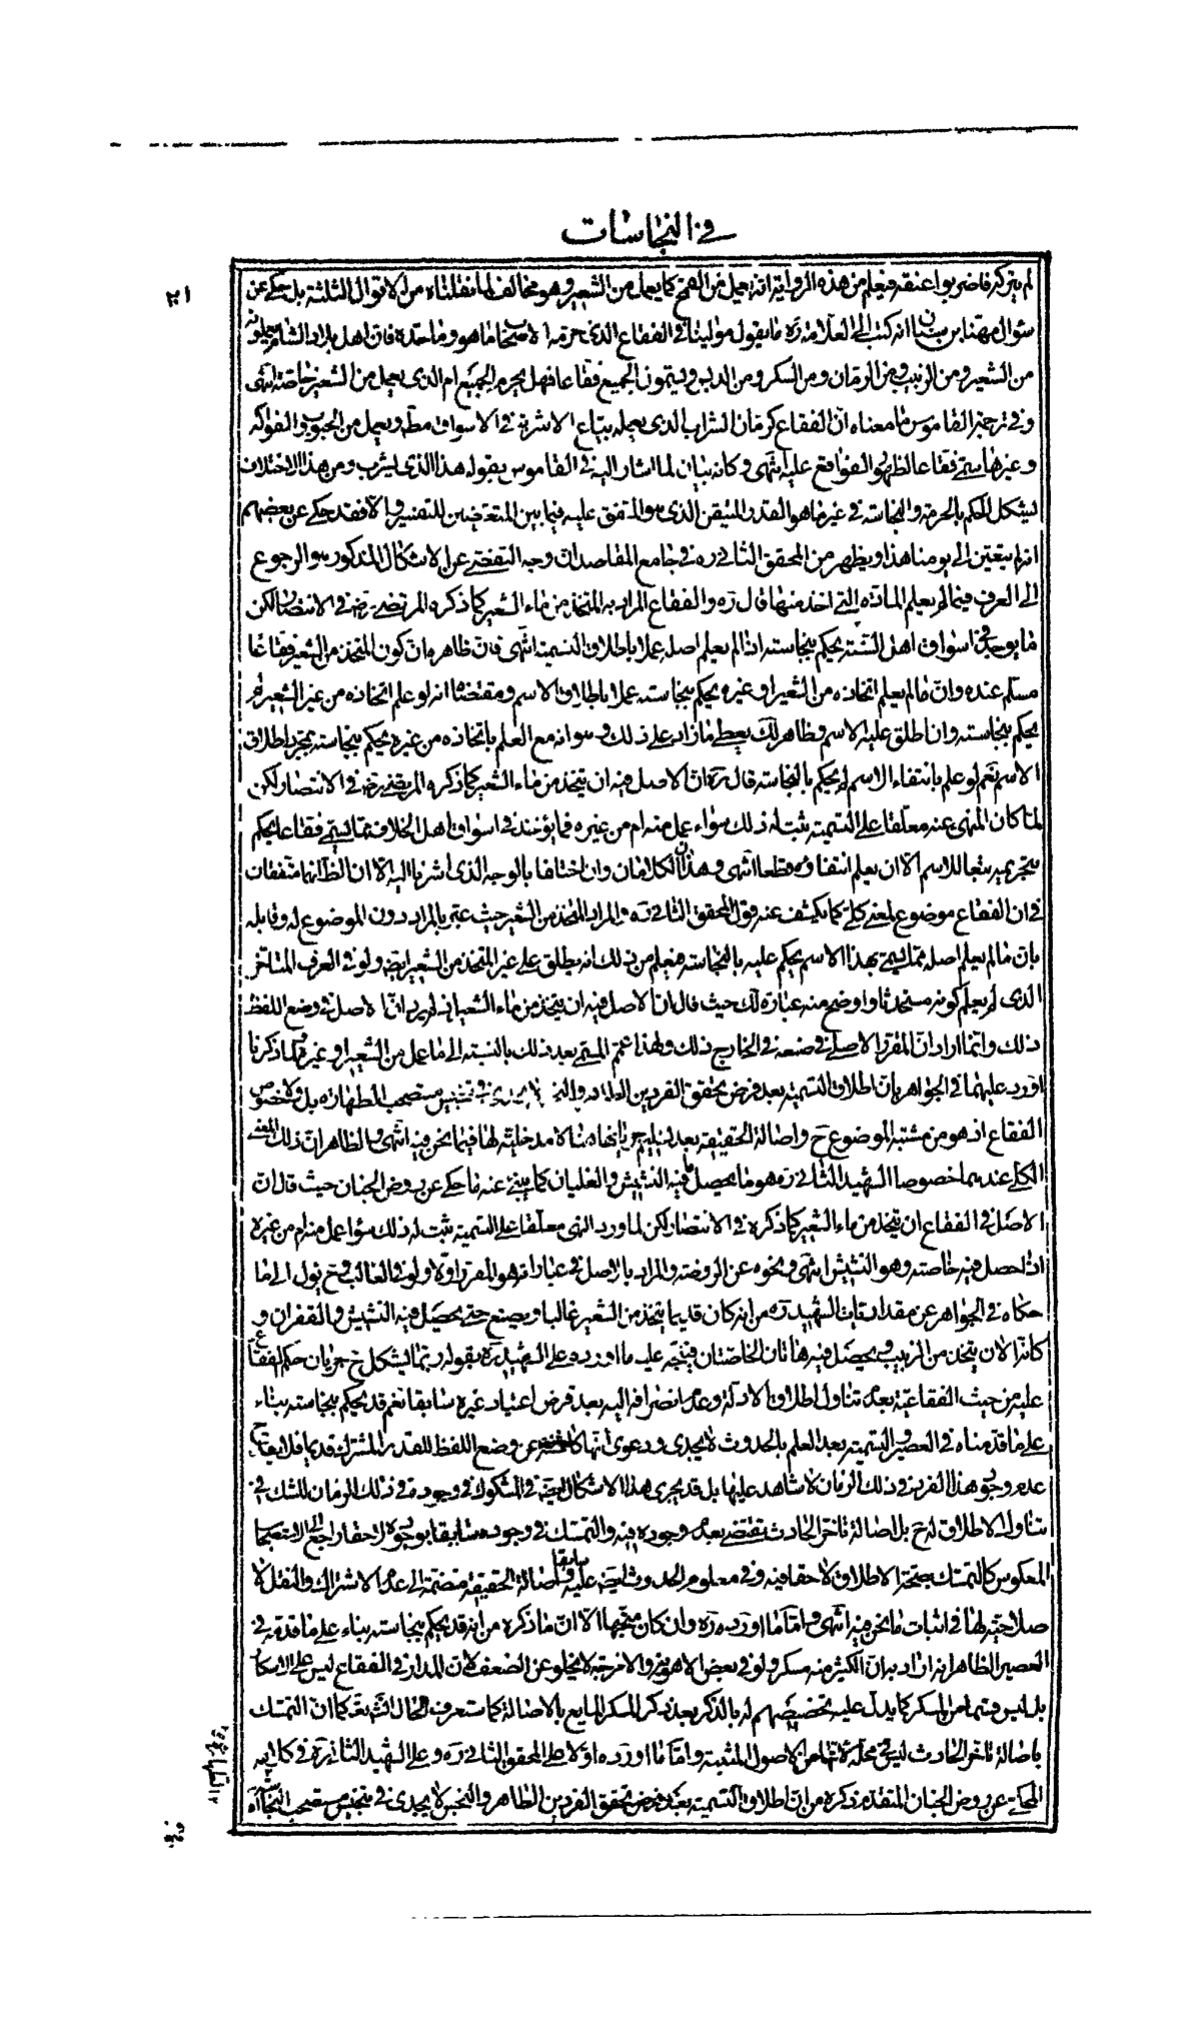 في النجاسات
٢١
لم يتركه فاضربوا عنقه فيعلم من هذه الرواية انه يعمل من القمح كما يعمل من الشعير وهو مخالف لما نقلناه من الاقوال الثلثة بل حكى عن
سؤال مهنا بن سنان انه كتب الى العلامة ره ما يقول مولينا في الفقاع الذى حرمه الاصحاب ما هو وما حده فان اهل بلاد الشام يعملونه
من الشعير ومن الزبيب ومن الرمان ومن السكر ومن الدبس ويسمون الجميع فقاعا فهل يحرم الجميع ام الذى يعمل من الشعير خاصة انتهى
وفي ترجمة القاموس ما معناه ان الفقاع كرمان الشراب الذى يعمله بياع الاشربة في الاسواق مطه ويعمل من الحبوب والفواكه
وغيرها سمى فقاعا لظهور الفواقع عليه انتهى وكانه بيان لما اشار اليه في القاموس بقوله هذا الذى يشرب ومن هذا الاختلاف
يشكل الحكم بالحرمة والنجاسة في غير ما هو القدر المتيقن الذى هو المتفق عليه فيما بين المتعرضين للتفسير والا فقد حكى عن بعضهم
انه لم يتعين الى يومنا هذا ويظهر من المحقق الثاني ره في جامع المقاصد ان وجه التفصى عن الاشكال المذكور هو الرجوع
الى العرف فيما لم يعلم المادة التى اخذ منها قال ره والفقاع المراد به المتخذ من ماء الشعير كما ذكره المرتضى رض في الانتصار لكن
ما يوجد في اسواق اهل السنة يحكم بنجاسته اذا لم يعلم اصله عملا باطلاق التسمية انتهى فان ظاهره ان كون المتخذ من الشعير فقاعا
مسلم عنده وان ما لم يعلم اتخاذه من الشعير او غيره يحكم بنجاسته عملا باطلاق الاسم ومقتضاه انه لو علم اتخاذه من غير الشعير لم
يحكم بنجاسته وان اطلق عليه الاسم وظاهر لك يعطى ما زاد على ذلك وهو انه مع العلم باتخاذه من غيره يحكم بنجاسته بمجرد اطلاق
الاسم نعم لو علم بانتفاء الاسم لم يحكم بالنجاسة قال ره ان الاصل فيه ان يتخذ من ماء الشعير كما ذكره المرتضى رض في الانتصار لكن
لما كان النهى عنه معلقا على التسمية ثبت له ذلك سواء عمل منه ام من غيره فما يؤخذ في اسواق اهل الخلاف مما يسمى فقاعا يحكم
بتحريمه تبعا للاسم الا ان يعلم انتفاؤه قطعا انتهى وهذان الكلامان وان اختلفا بالوجه الذى اشرنا اليه الا ان الظ انهما متفقان
في ان الفقاع موضوع لمعنى كلى كما يكشف عنه قول المحقق الثاني ره والمراد المتخذ من الشعير حيث عبر بالمراد دون الموضوع له وقابله
بان ما لم يعلم اصله مما يسمى بهذا الاسم يحكم عليه بالنجاسة فيعلم من ذلك انه يطلق على غير المتخذ من الشعير ايضا ولو في العرف المتاخر
الذى لم يعلم كونه مستحدثا واوضح منه عبارة لك حيث قال ان الاصل فيه ان يتخذ من ماء الشعير اذ لم يرد ان الاصل في وضع اللفظ
ذلك وانما اراد ان المقرر الاصلى في صنعه في الخارج ذلك ولهذا عمم المسمى بعد ذلك بالنسبة الى ما عمل من الشعير او غيره وكما ذكرنا
اورد عليهما في الجواهر بان اطلاق التسمية بعد فرض تحقق الفردين الطاهر والنجس لا يجدى في تنجيس مستصحب الطهارة بل ولا خصوص
الفقاع اذ هو من مشتبه الموضوع ح واصالة الحقيقة بعد تسليم جريانها هنا لا مدخلية لها فيما نحن فيه انتهى والظاهر ان ذلك المعنى
الكلى عندهما خصوصا الشهيد الثاني ره هو ما يحصل فيه النشيش والغليان كما ينبئ عنه ما حكى عن روض الجنان حيث قال ان
الاصل في الفقاع ان يتخذ من ماء الشعير كما ذكره في الانتصار لكن لما ورد النهى معلقا على التسمية ثبت له ذلك سواء عمل منه ام من غيره
اذا حصل فيه خاصته وهو النشيش انتهى ونحوه عن الروضة والمراد بالاصل في عباراتهم هو المقرر اولا ولو في الغالب وح يؤل الى ما
حكاه في الجواهر عن مقداديات الشهيد ره من انه كان قديما يتخذ من الشعير غالبا ويصنع حتى يحصل فيه النشيش والقفزان و
كانه الان يتخذ من الزبيب ويحصل فيه هاتان الخاصتان فيتجه عليه ما اورده على الشهيد ره بقوله ربما يشكل ح جريان حكم الفقاع
عليه من حيث الفقاعية بعدم تناول اطلاق الادلة وعدم انصرافه اليه بعد فرض اعتياد غيره سابقا نعم قد يحكم بنجاسته بناء
على ما قدمناه في العصير والتسمية بعد العلم بالحدوث لا يجدى ودعوى انها كاشفة عن وضع اللفظ للقدر المشترك قديما فلا يقدح
عدم وجود هذا الفرد في ذلك الزمان لا شاهد عليها بل قد يجرى هذا الاشكال ايضا في المشكوك في وجوده في ذلك الزمان للشك في
تناول الاطلاق له ح بل اصالة تاخر الحادث تقتضى بعدم وجوده فيه والتمسك في وجوده سابقا بوجوده لاحقا راجع الى الاستصحاب
المعكوس كالتمسك بصحة الاطلاق لاحقا فيه وفي معلوم الحدوث ايضا عليه سابقا واصالة الحقيقة منضمة الى عدم الاشتراك والنقل لا
صلاحية لها في اثبات ما نحن فيه انتهى واما ما اورده ره وان كان متجها الا ان ما ذكره من انه قد يحكم بنجاسته بناء على ما قدمه في
العصير الظاهر انه اراد به ان الكثير منه مسكر ولو في بعض الاهوية والامزجة لا يخلو عن الضعف لان المدار في الفقاع ليس على الاسكار
بل ليس قسما من المسكر كما يدل عليه تخصيصهم له بالذكر بعد ذكر المسكر المايع بالاصالة كما ستعرف الحال انشاء الله كما ان التمسك
باصالة تاخر الحادث ليس في محله لانها من الاصول المثبتة واما ما اورده اولا على المحقق الثاني ره وعلى الشهيد الثاني ره في كلامه
المحكى عن روض الجنان المتقدم ذكره من ان اطلاق التسمية بعد فرض تحقق الفردين الطاهر والنجس لا يجدى في تنجيس مستصحب النجاسة